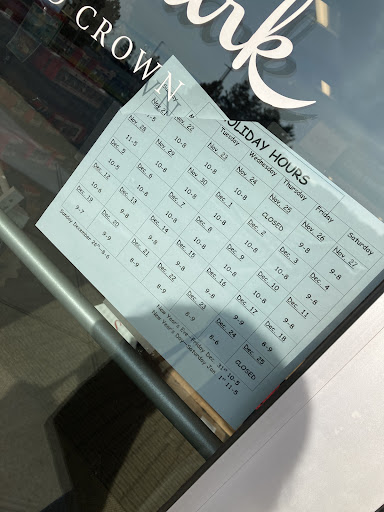 ark
& CROWN
HOLIDAY HOURS
Tuesday Wednesday Thursday Friday Saturday
Nov. 21 Nov. 22 Nov. 23 Nov. 24 Nov. 25 Nov. 26 Nov. 27
10-8 10-8 10-8 CLOSED 9-8 9-8
Nov. 28 Nov. 29 Nov. 30 Dec. 1 Dec. 2 Dec. 3 Dec. 4
11-5 10-8 10-8 10-8 10-8 9-8 9-8
Dec. 5 Dec. 6 Dec. 7 Dec. 8 Dec. 9 Dec. 10 Dec. 11
10-5 10-8 10-8 10-8 10-8 9-8 9-8
Dec. 12 Dec. 13 Dec. 14 Dec. 15 Dec. 16 Dec. 17 Dec. 18
10-6 9-8 9-8 9-8 9-8 8-9
Dec. 19 Dec. 20 Dec. 21 Dec. 22 Dec. 23 Dec. 24 Dec. 25
9-7 8-9 8-9 8-9 8-6 CLOSED
Sunday December 26th
New Year's Eve-Friday Dec. 31st 10-5
New Year's Day-Saturday Jan. 1st 11-5